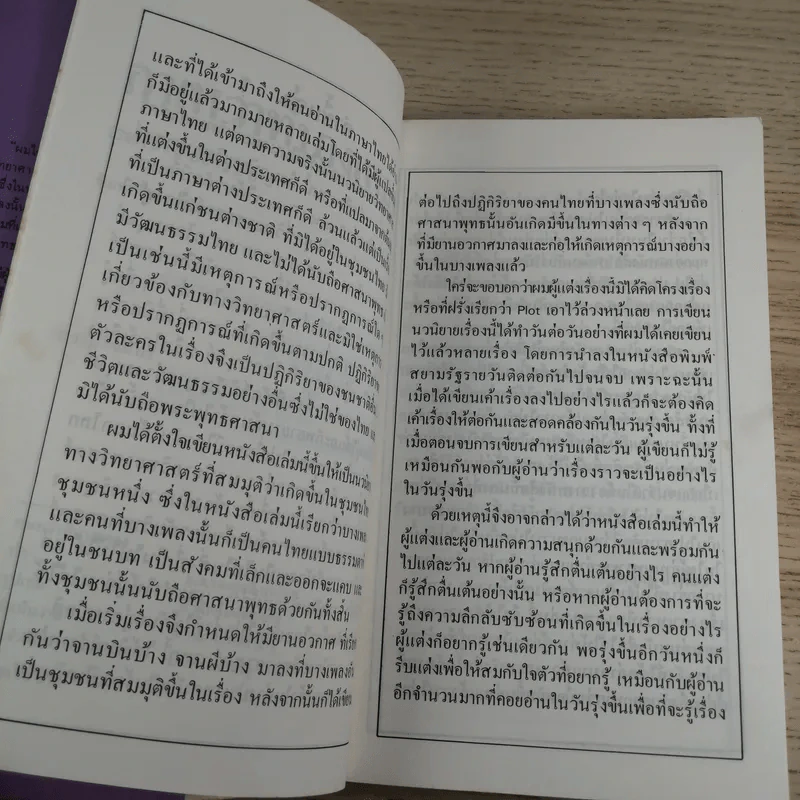 และที่ได้เข้ามาถึงให้คนอ่านในภาษาไทยได้
ก็มีอยู่แล้วมากมายหลายเล่มโดยที่ได้มีผู้แปล
ภาษาไทย แต่ตามความจริงนั้นนวนิยายวิทยาศาสตร์
ที่แต่งขึ้นในต่างประเทศก็ดี หรือที่แปลมาจาก
ที่เป็นภาษาต่างประเทศก็ดี ล้วนแล้วแต่เป็น
เกิดขึ้นแก่ชนต่างชาติ ที่มิได้อยู่ในชุมชนไทย
มีวัฒนธรรมไทย และไม่ได้นับถือศาสนาพุทธ
เป็นเช่นนี้มีเหตุการณ์หรือปรากฏการณ์ใด ๆ
เกี่ยวข้องกับทางวิทยาศาสตร์และมิใช่เหตุการณ์
หรือปรากฏการณ์ที่เกิดขึ้นตามปกติ ปฏิกิริยา
ตัวละครในเรื่องจึงเป็นปฏิกิริยาของชนชาติอื่น
ชีวิตและวัฒนธรรมอย่างอื่นซึ่งไม่ใช่ของไทย และ
มิได้นับถือพระพุทธศาสนา
ผมได้ตั้งใจเขียนหนังสือเล่มนี้ขึ้นให้เป็นนวนิยาย
ทางวิทยาศาสตร์ที่สมมุติว่าเกิดขึ้นในชุมชนไทย
ชุมชนหนึ่ง ซึ่งในหนังสือเล่มนี้เรียกว่าบางเพลง
และคนที่บางเพลงนั้นก็เป็นคนไทยแบบธรรมดาที่
อยู่ในชนบท เป็นสังคมที่เล็กและออกจะแคบ และ
ทั้งชุมชนนั้นนับถือศาสนาพุทธด้วยกันทั้งสิ้น
เมื่อเริ่มเรื่องจึงกำหนดให้มียานอวกาศ ที่เรียก
กันว่าจานบินบ้าง จานผีบ้าง มาลงที่บางเพลงอัน
เป็นชุมชนที่สมมุติขึ้นในเรื่อง หลังจากนั้นก็ได้เขียน
ต่อไปถึงปฏิกิริยาของคนไทยที่บางเพลงซึ่งนับถือ
ศาสนาพุทธนั้นอันเกิดมีขึ้นในทางต่าง ๆ หลังจาก
ที่มียานอวกาศมาลงและก่อให้เกิดเหตุการณ์บางอย่าง
ขึ้นในบางเพลงแล้ว
ใคร่จะขอบอกว่าผมผู้แต่งเรื่องนี้มิได้คิดโครงเรื่อง
หรือที่ฝรั่งเรียกว่า Plot เอาไว้ล่วงหน้าเลย การเขียน
นวนิยายเรื่องนี้ได้ทำวันต่อวันอย่างที่ผมได้เคยเขียน
ไว้แล้วหลายเรื่อง โดยการนำลงในหนังสือพิมพ์
สยามรัฐรายวันติดต่อกันไปจนจบ เพราะฉะนั้น
เมื่อได้เขียนเค้าเรื่องลงไปอย่างไรแล้วก็จะต้องคิด
เค้าเรื่องให้ต่อกันและสอดคล้องกันในวันรุ่งขึ้น ทั้งที่
เมื่อตอนจบการเขียนสำหรับแต่ละวัน ผู้เขียนก็ไม่รู้
เหมือนกันพอกับผู้อ่านว่าเรื่องราวจะเป็นอย่างไร
ในวันรุ่งขึ้น
ด้วยเหตุนี้จึงอาจกล่าวได้ว่าหนังสือเล่มนี้ทำให้
ผู้แต่งและผู้อ่านเกิดความสนุกด้วยกันและพร้อมกัน
ไปแต่ละวัน หากผู้อ่านรู้สึกตื่นเต้นอย่างไร คนแต่ง
ก็รู้สึกตื่นเต้นอย่างนั้น หรือหากผู้อ่านต้องการที่จะ
รู้ถึงความลึกลับซับซ้อนที่เกิดขึ้นในเรื่องอย่างไร
ผู้แต่งก็อยากรู้เช่นเดียวกัน พอรุ่งขึ้นอีกวันหนึ่งก็
รีบแต่งเพื่อให้สมกับใจตัวที่อยากรู้ เหมือนกับผู้อ่าน
อีกจำนวนมากที่คอยอ่านในวันรุ่งขึ้นเพื่อที่จะรู้เรื่อง